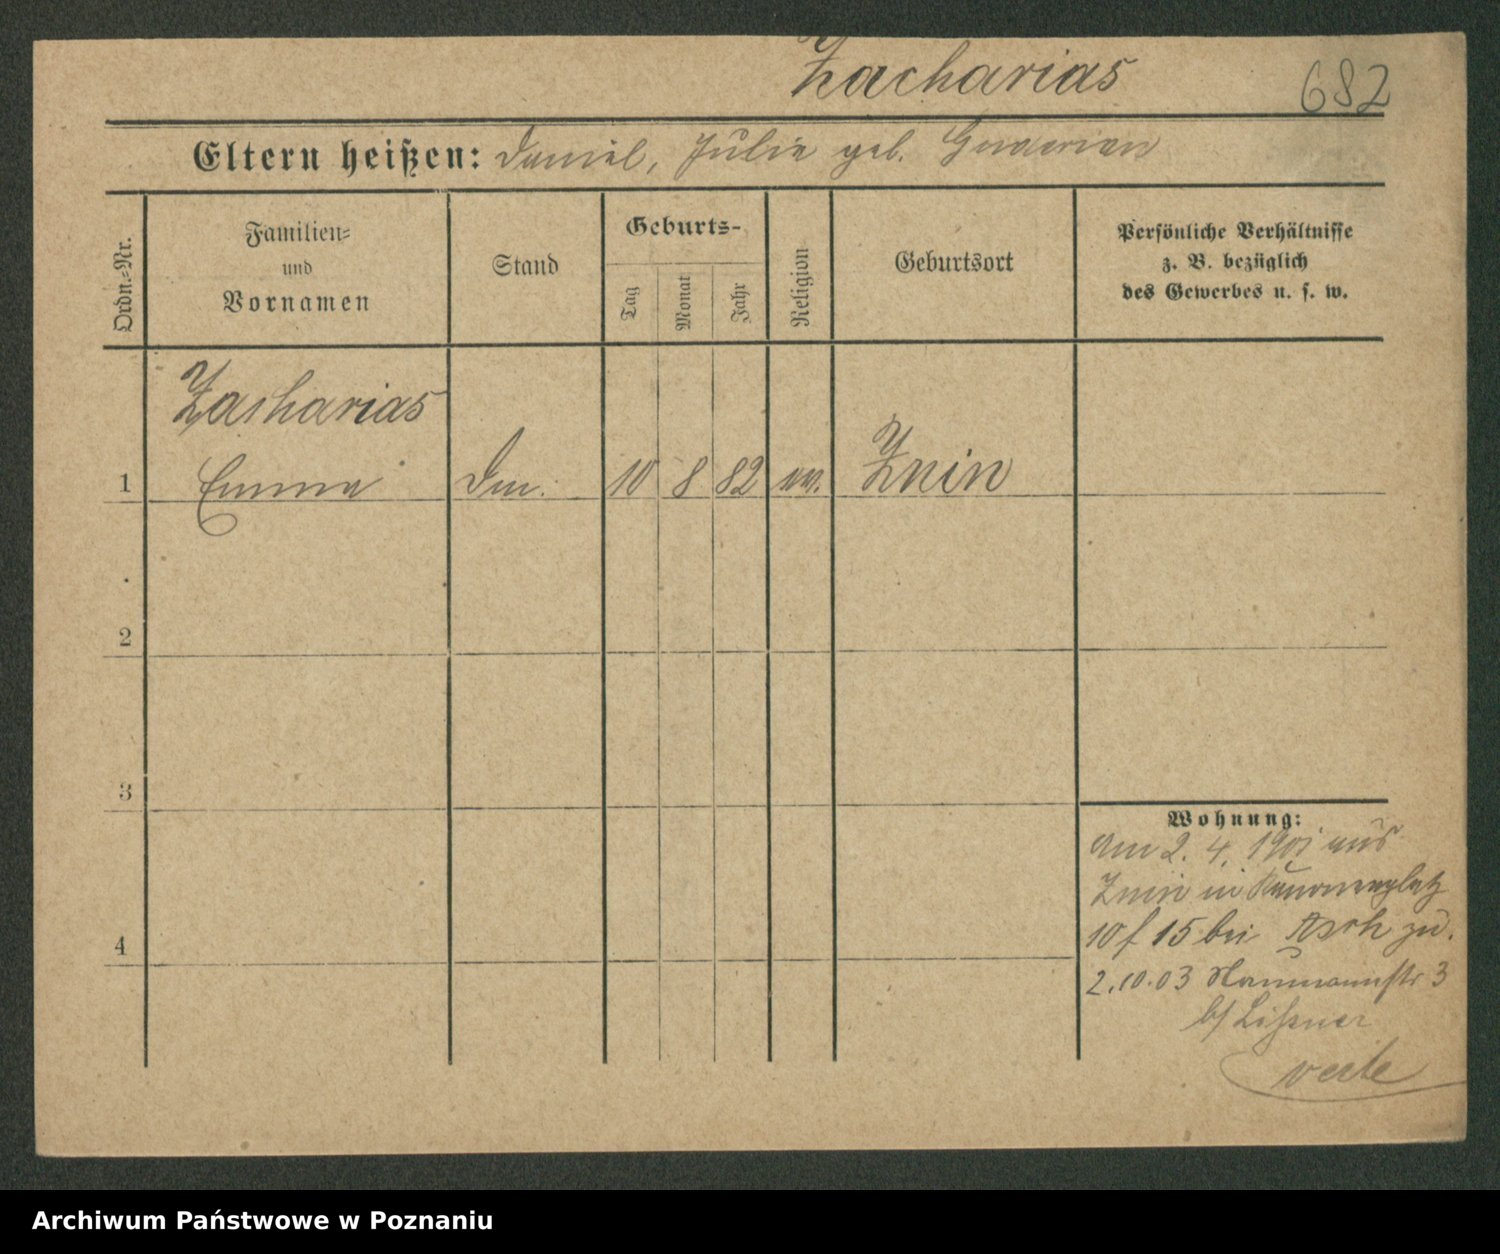 Zacharias 682
Eltern heißen: Daniel, Julie geb.
Ordn.-Nr.
Familien-
und
Vornamen
Stand
Geburts-
Tag
Monat
Jahr
Religion
Geburtsort
Persönliche Verhältnisse
z. B. bezüglich
des Gewerbes u. s. w.
Zacharias
1 Emma 10 8 82 Znin
2
3
4
Wohnung:
am 2. 4. 1901 aus
Znin in Kanonenplatz
10 f 15 bei Asch zu.
2.10.03 Naumannstr 3
b/ Lissner
Archiwum Państwowe w Poznaniu